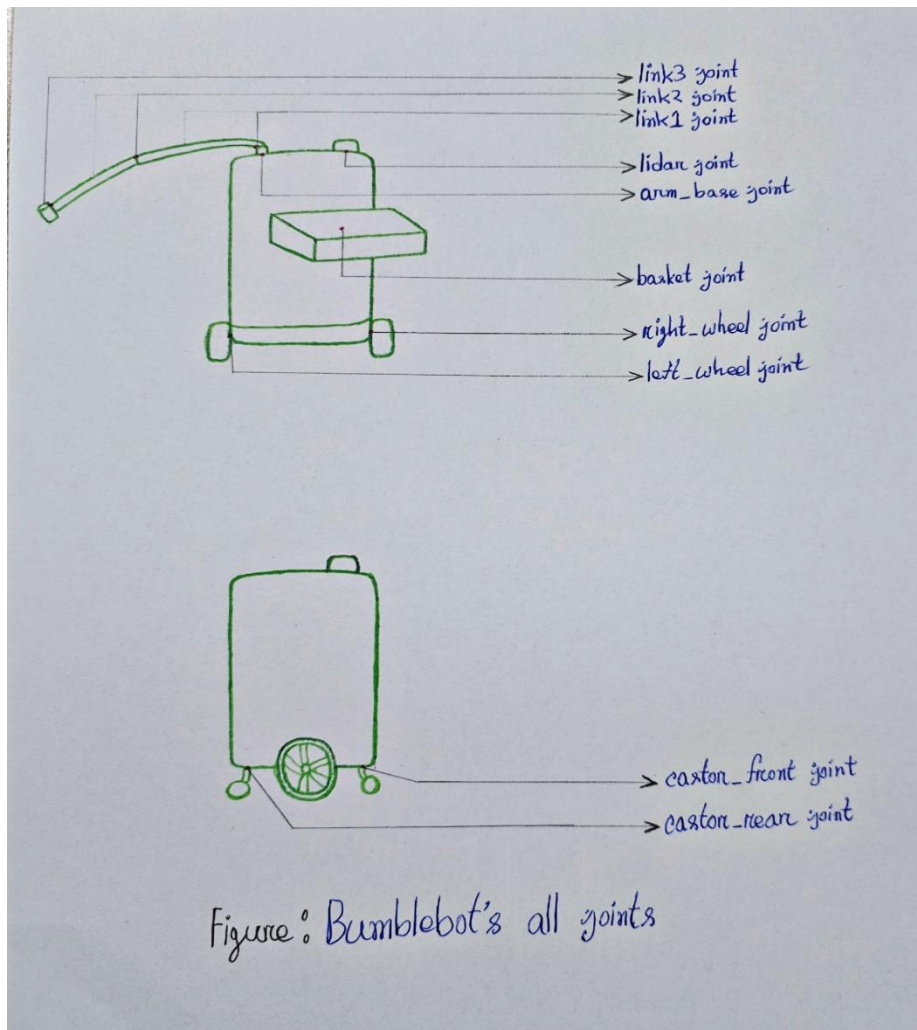 link3 joint
link2 joint
link1 joint
lidar joint
arm_base joint
basket joint
right_wheel joint
left_wheel joint
castor_front joint
castor_rear joint
Figure: Bumblebot's all joints